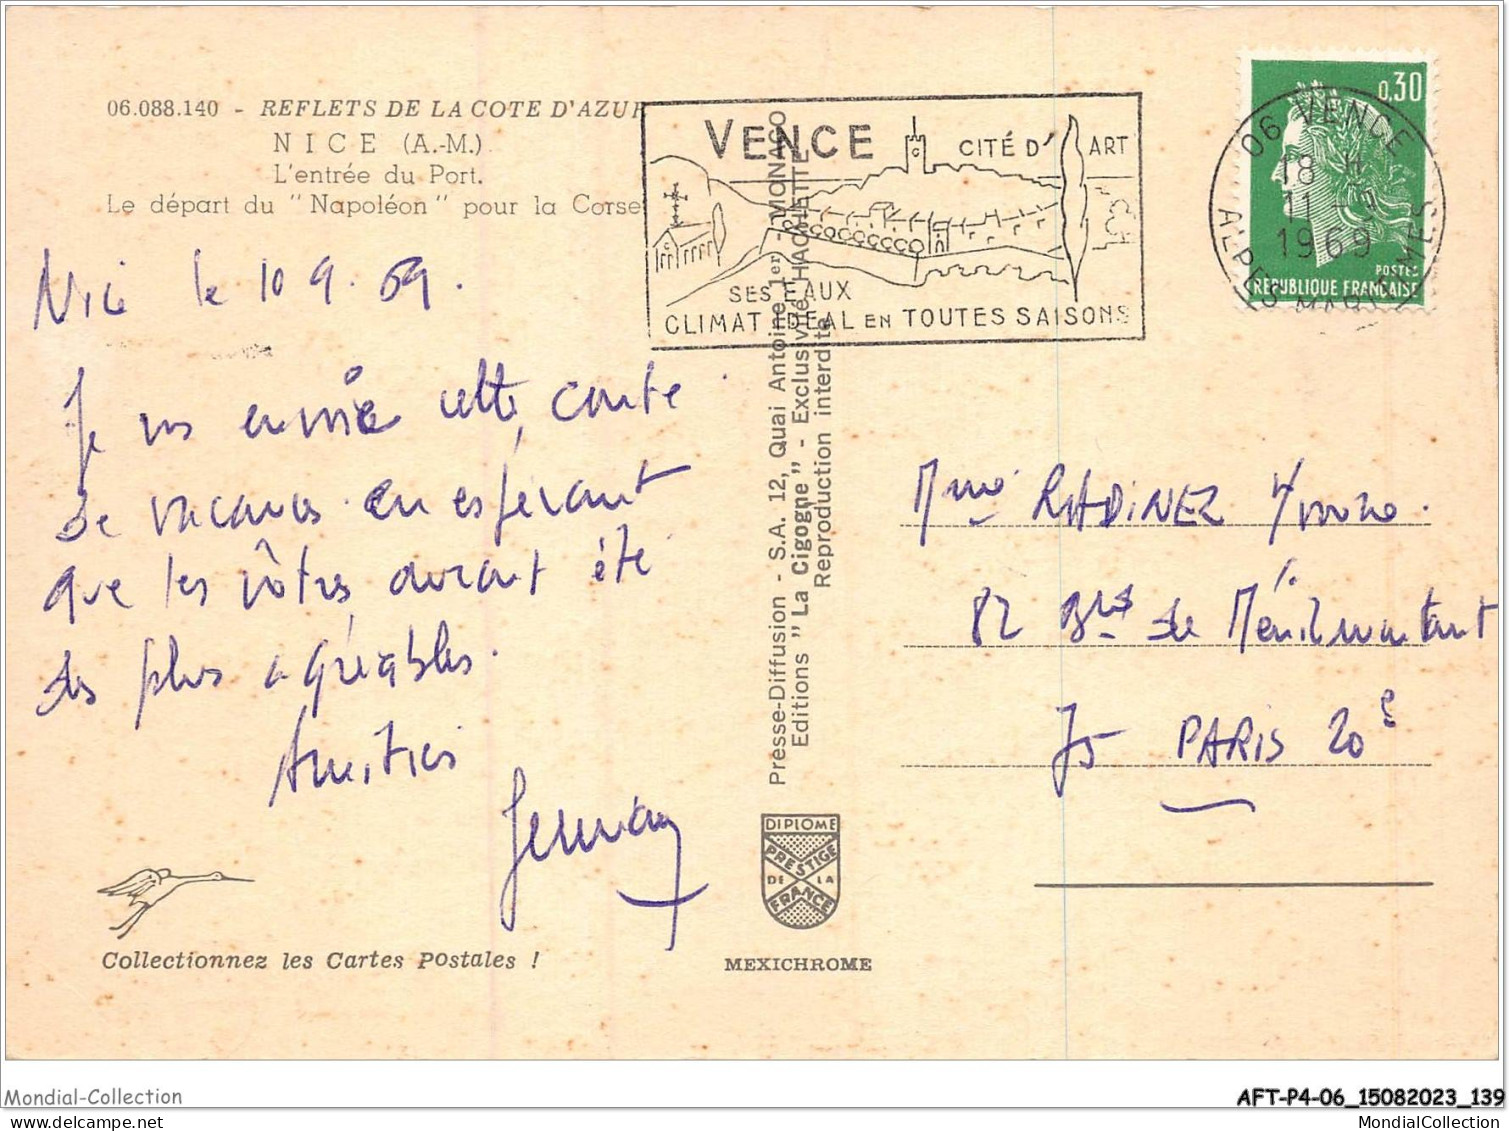 06.088.140 - REFLETS DE LA COTE D'AZUR
NICE (A.-M.)
L'entrée du Port.
Le départ du "Napoléon" pour la Corse
VENCE
CITÉ D'ART
SES EAUX
CLIMAT IDEAL EN TOUTES SAISONS
0,30
POSTES
REPUBLIQUE FRANÇAISE
06 VENCE
18 H
11 - 9
1969
ALPES MARITIMES
Nice le 10 9. 69.
Je vs envoie cette carte
de vacances en espérant
que les vôtres auront été
des plus agréables.
Amitiés
Presse-Diffusion - S.A. 12, Quai Antoine 1er - MONACO
Editions "La Cigogne" - Exclusivité HACHETTE
Reproduction interdite
Mme RADINEZ Yvonne.
82 de Ménilmontant
75 PARIS 20e
DIPLOME
PRESTIGE
DE LA
FRANCE
Collectionnez les Cartes Postales !
MEXICHROME
Mondial-Collection
AFT-P4-06_15082023_139
MondialCollection